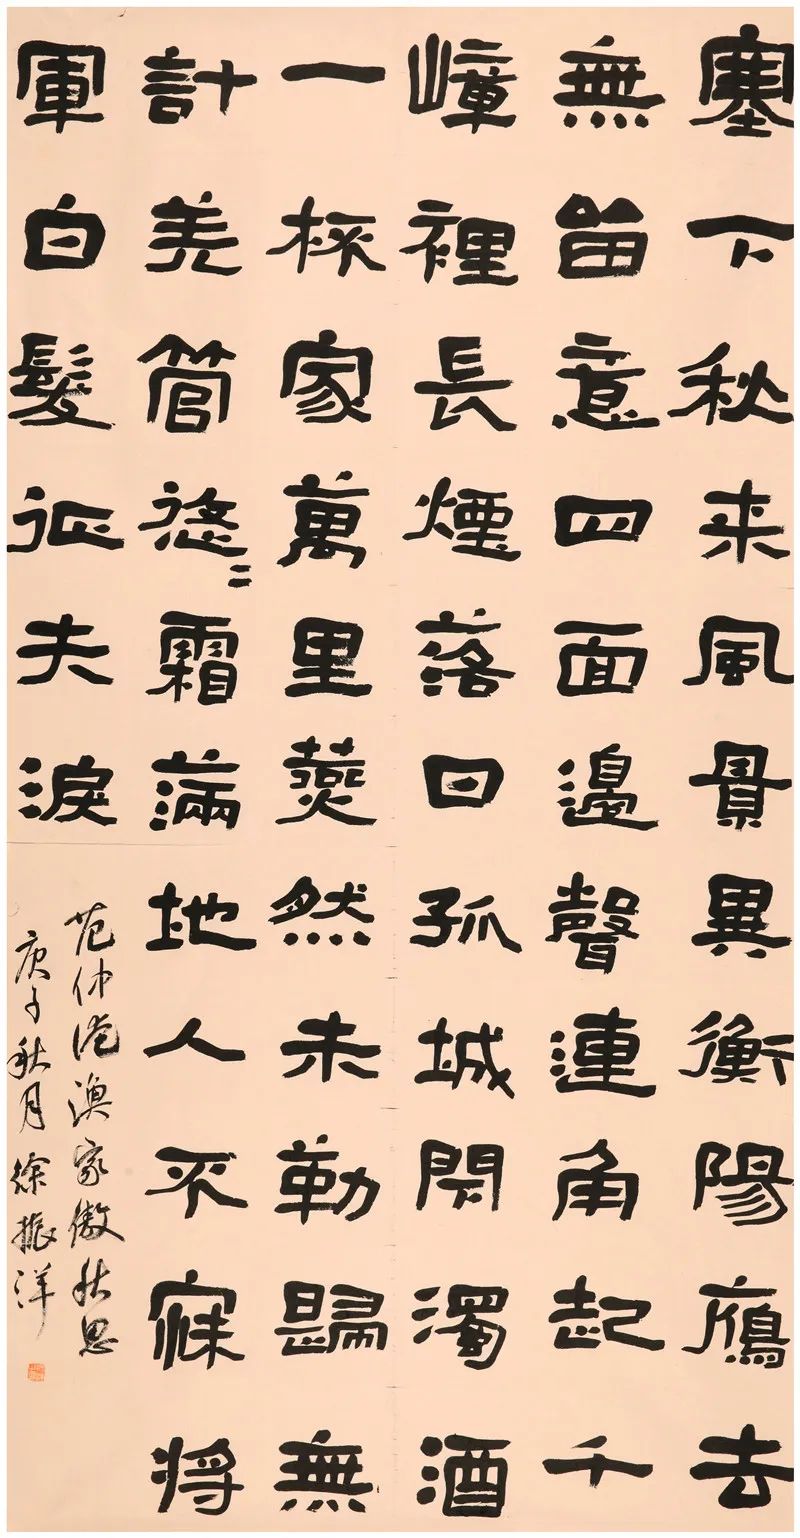 塞下秋来風景異衡陽鴈去
無留意四面邊聲連角起千
嶂裡長煙落日孤城閉濁酒
一杯家萬里燕然未勒歸無
計羌管悠〻霜滿地人不寐將
軍白髮征夫淚
范仲淹漁家傲秋思
庚子秋月徐振洋